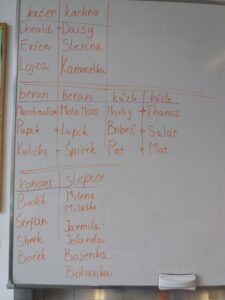 kačer kachna
Donald + Daisy
Evžen Slezina
Lojza Karamelka
beran beran kůzle kůzle
Marshmallow MotoMoto Marley + Thanos
Pupík + lupík Bobeš + Salát
Kulička + Špíček Pat + Mat
kohout slepice
Budík Milena
Miluška
Štefan Jarmila
Shrek Jolanda
Bořek Boženka
Bohunka